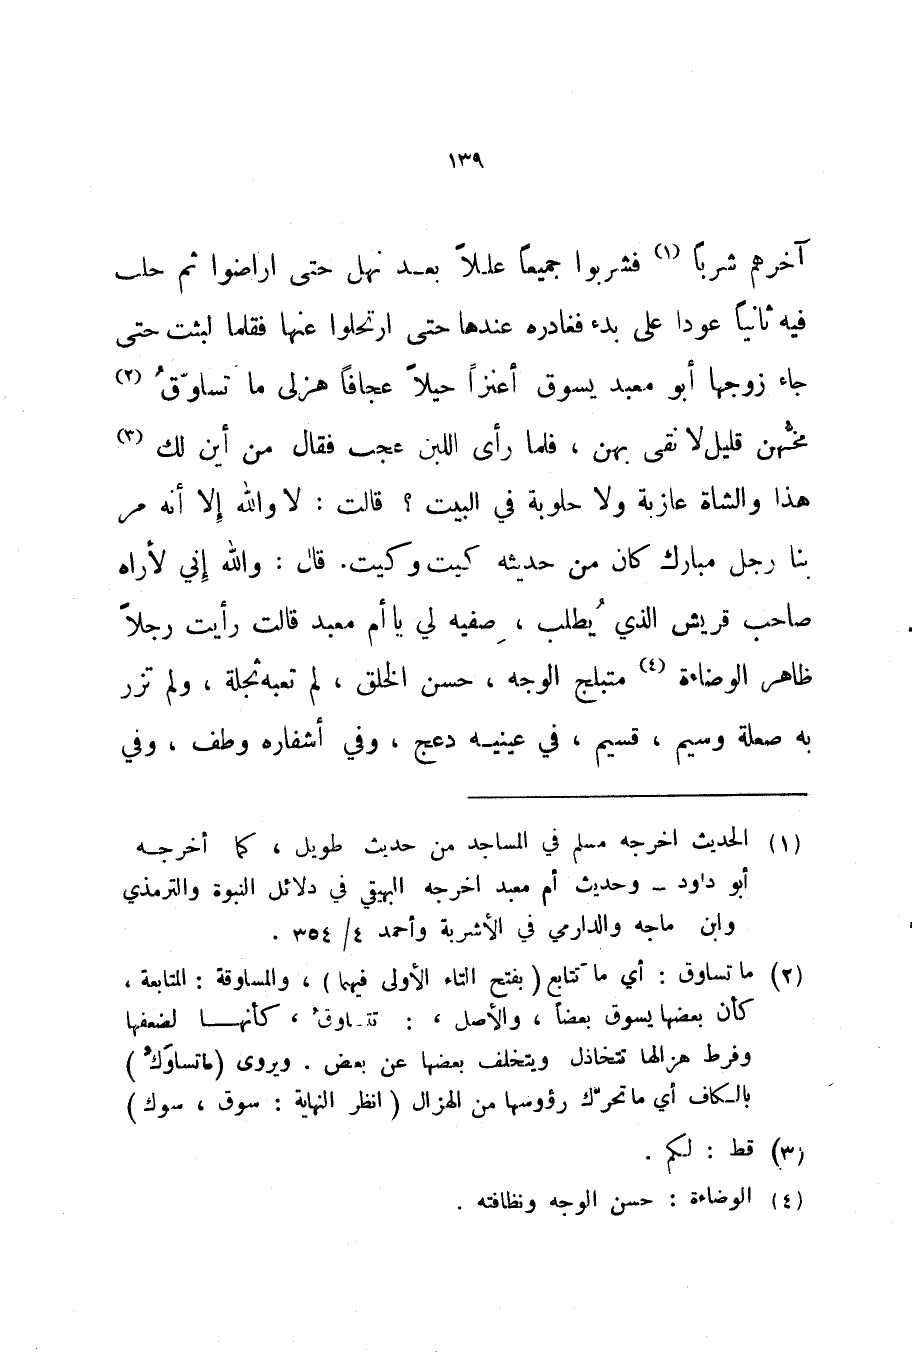 ١٣٩
آخرهم شرباً (١) فشربوا جميعاً عللاً بعد نهل حتى اراضوا ثم حلب
فيه ثانياً عودا على بدء فغادره عندها حتى ارتحلوا عنها فقلما لبثت حتى
جاء زوجها أبو معبد يسوق أعنزاً حيلاً عجافاً هزلى ما تساوَقُ (٢)
مخهن قليل لا نقى بهن ، فلما رأى اللبن عجب فقال من أين لك (٣)
هذا والشاة عازبة ولا حلوبة في البيت ؟ قالت : لا والله إلا أنه مر
بنا رجل مبارك كان من حديثه كيت وكيت. قال : والله إني لأراه
صاحب قريش الذي يُطلب ، صفيه لي يا أم معبد قالت رأيت رجلاً
ظاهر الوضاءة (٤) متبلج الوجه ، حسن الخلق ، لم تعبه ثجلة ، ولم تزر
به صعلة وسيم ، قسيم ، في عينيه دعج ، وفي أشفاره وطف ، وفي
(١) الحديث اخرجه مسلم في المساجد من حديث طويل ، كما أخرجه
أبو داود – وحديث أم معبد اخرجه البيهقي في دلائل النبوة والترمذي
وابن ماجه والدارمي في الأشربة وأحمد ٤/ ٣٥٤ .
(٢) ما تساوق : أي ما تَتابع ( بفتح التاء الأولى فيهما ) ، والمساوقة : المتابعة ،
كأن بعضها يسوق بعضاً ، والأصل ، : تتساوقُ ، كأنها لضعفها
وفرط هزالها تتخاذل ويتخلف بعضها عن بعض . ويروى ( ما تساوَكُ )
بالكاف أي ما تحرّك رؤوسها من الهزال ( انظر النهاية : سوق ، سوك )
(٣) قط : لكم .
(٤) الوضاءة : حسن الوجه ونظافته .